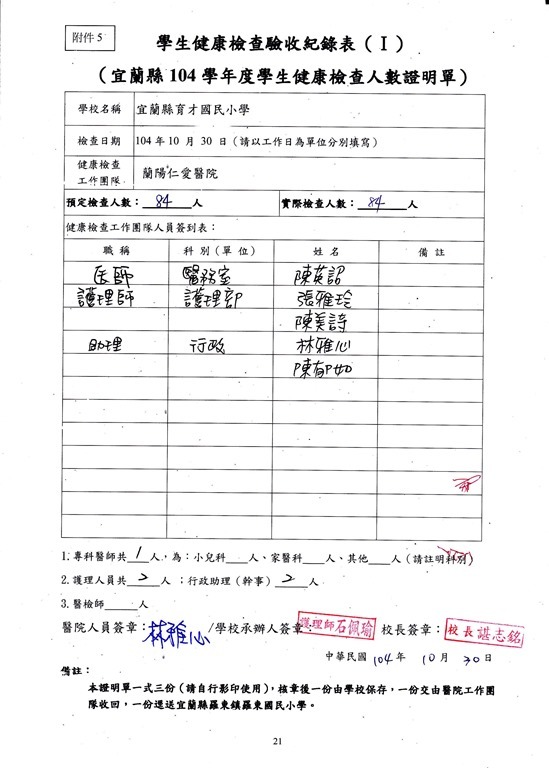 附件 5
學生健康檢查驗收紀錄表（Ⅰ）
（宜蘭縣 104 學年度學生健康檢查人數證明單）
學校名稱 宜蘭縣育才國民小學
檢查日期 104 年 10 月 30 日（請以工作日為單位分別填寫）
健康檢查
工作團隊 蘭陽仁愛醫院
預定檢查人數： 84 人 實際檢查人數： 84 人
健康檢查工作團隊人員簽到表：
職稱 科別（單位） 姓名 備註
医師 醫務室 陳英詔
護理師 護理部 張雅玲
陳美詩
助理 行政 林雅心
陳郁如
1.專科醫師共 1 人，為：小兒科 人、家醫科 人、其他 人（請註明科別）
2.護理人員共 2 人 ；行政助理（幹事） 2 人
3.醫檢師 人
醫院人員簽章：林雅心 /學校承辦人簽章：護理師 石佩瑜 校長簽章：校長 諶志銘
中華民國 104 年 10 月 30 日
備註：
本證明單一式三份（請自行影印使用），核章後一份由學校保存，一份交由醫院工作團
隊收回，一份逕送宜蘭縣羅東鎮羅東國民小學。
21